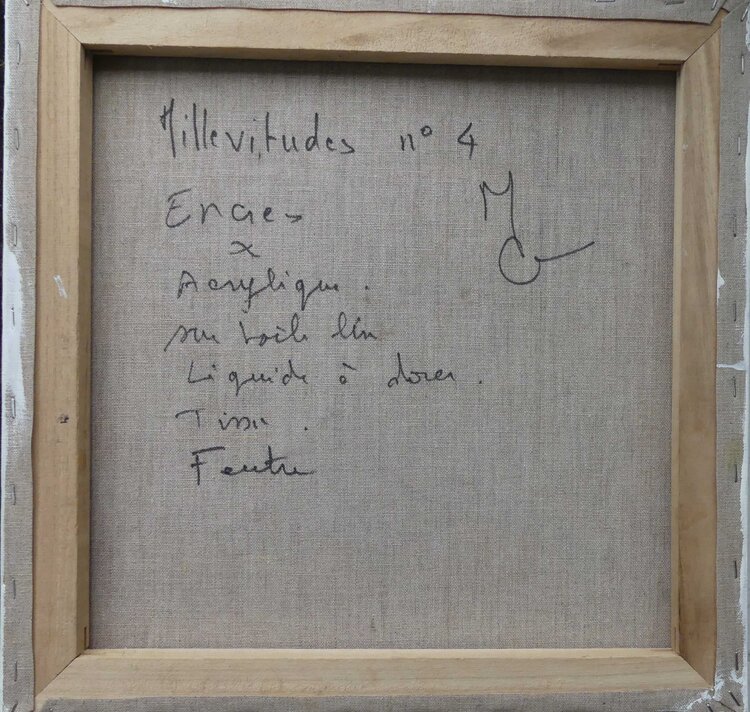 Millevitudes n° 4
MC
Encres
x
Acrylique.
sur toile lin
Liquide à dorer.
Tissu.
Feutre